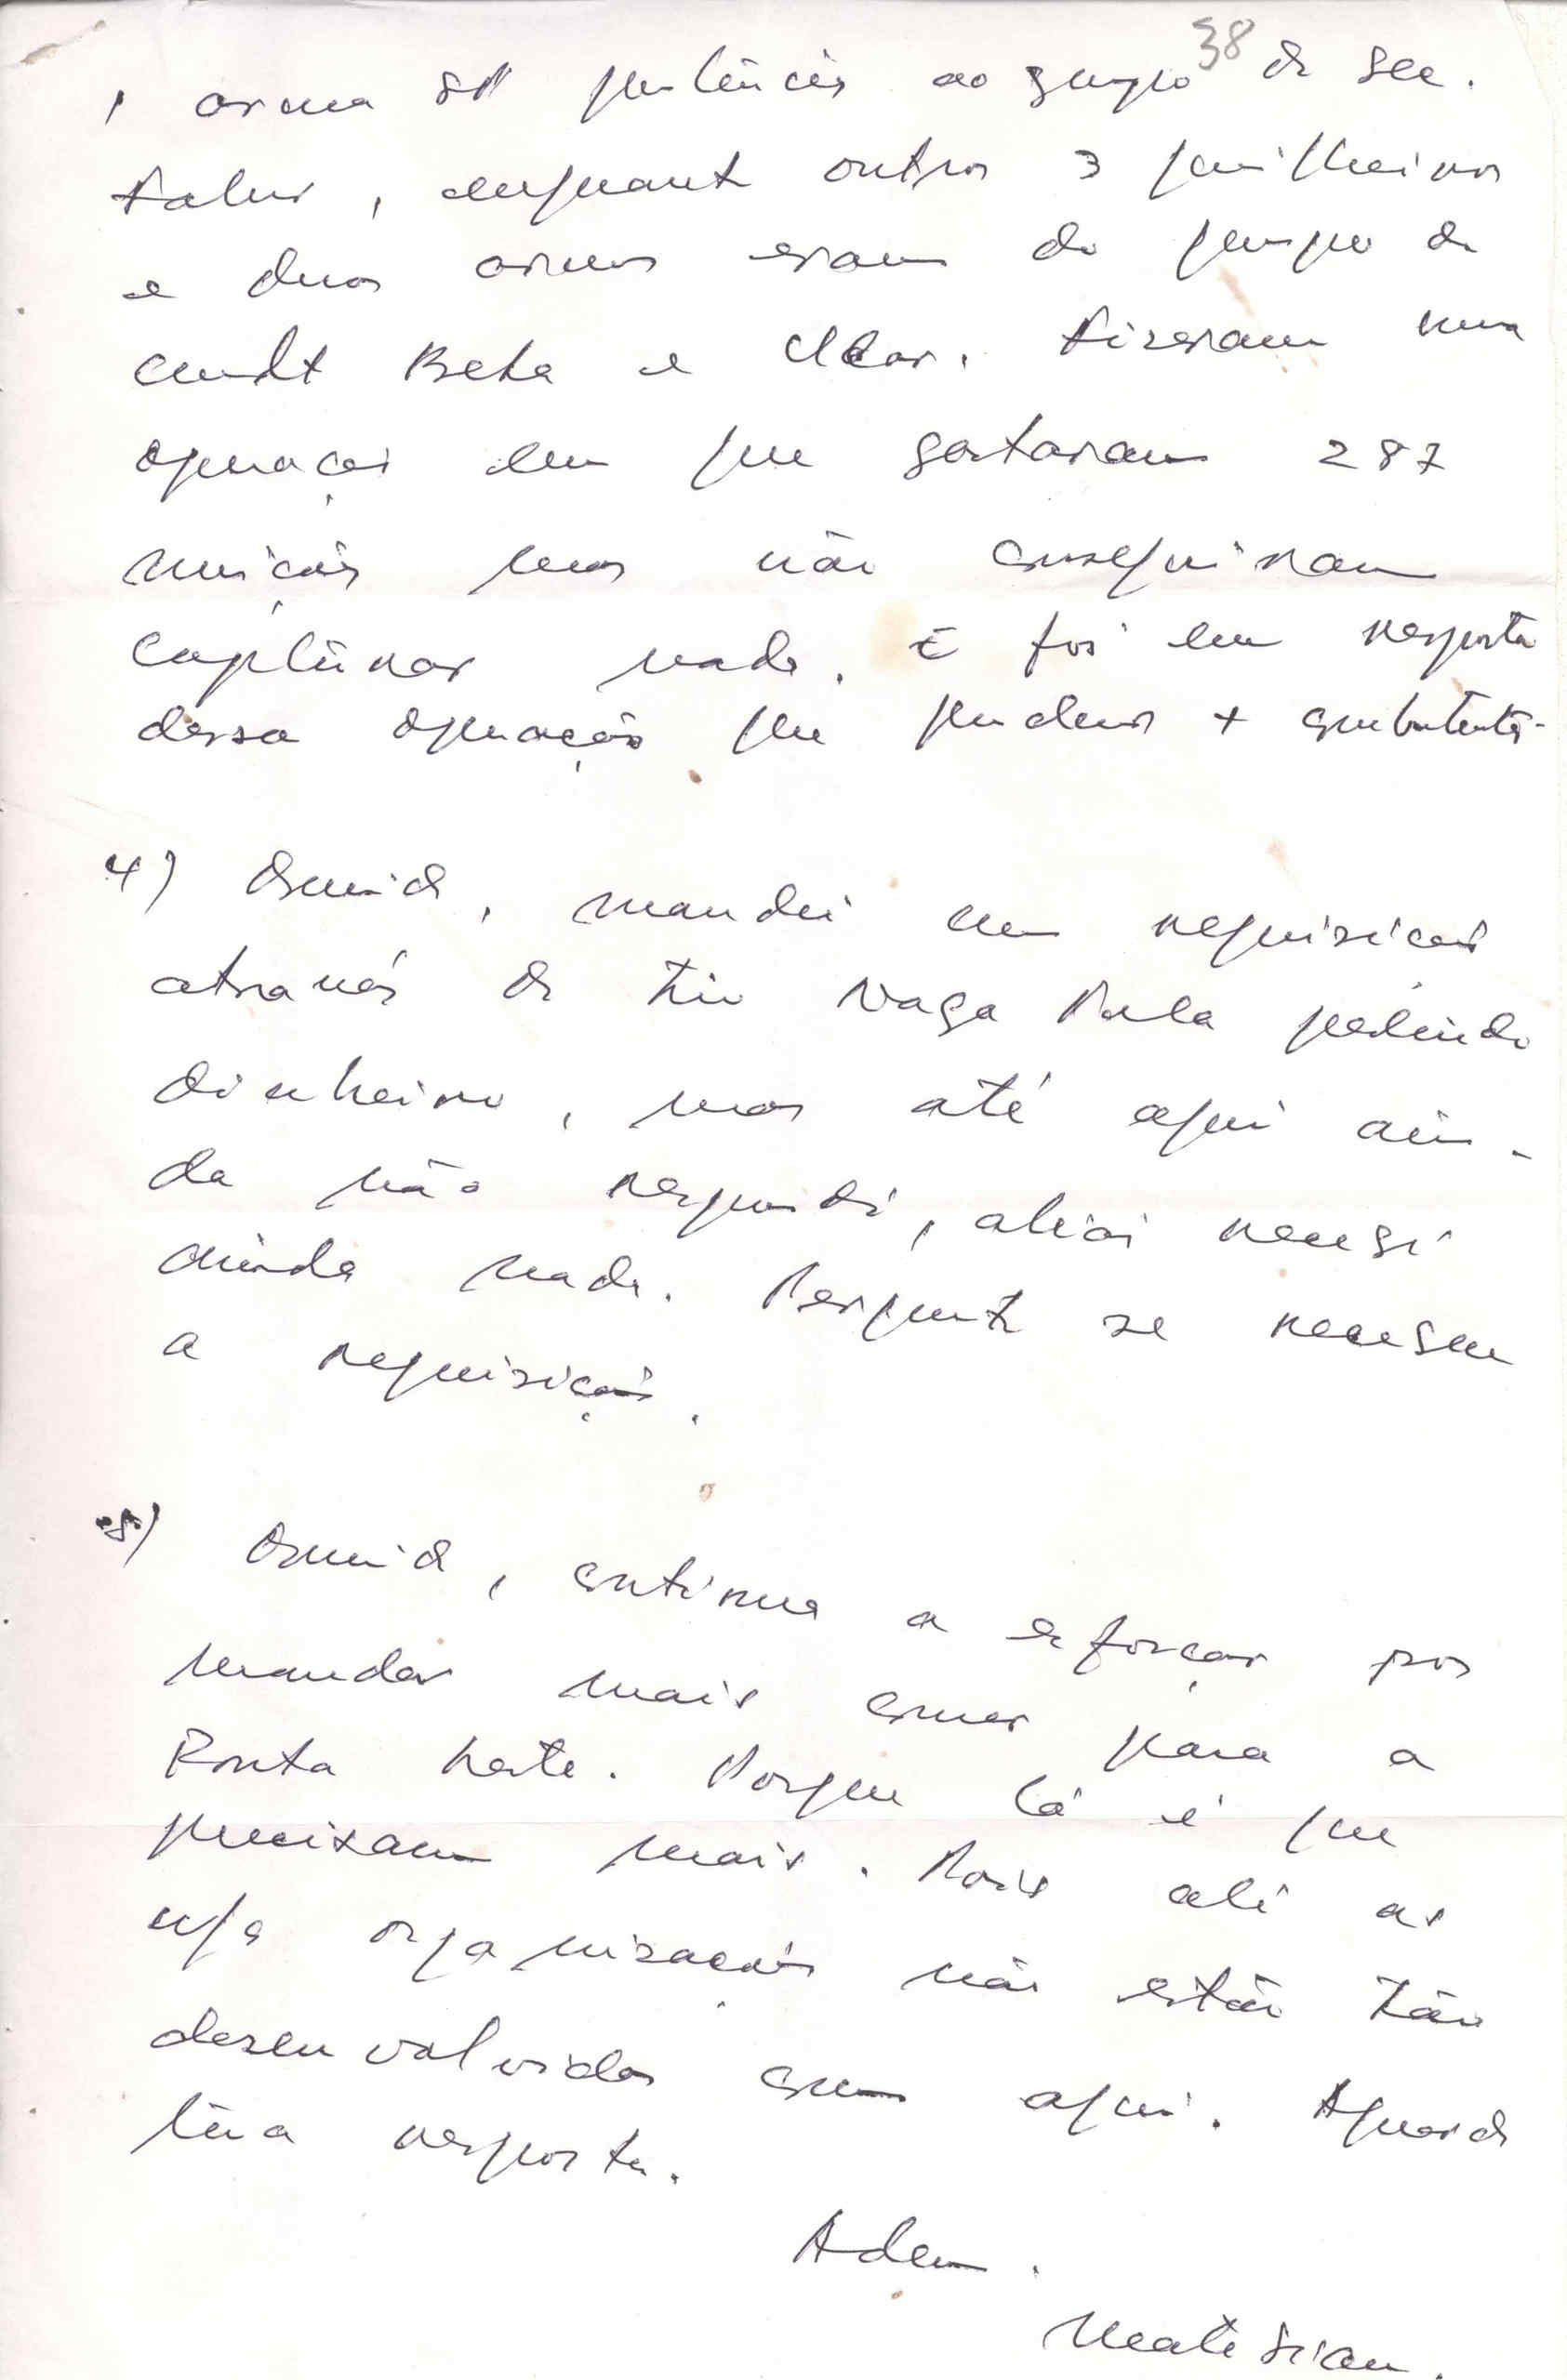 38
1 arma SP pertencia ao grupo de Sec.
Falur, enquanto outros 3 guilheiros
e duas armas eram do grupo de
cmdt Beta e Alar. Fizeram uma
operação em que gastaram 287
munições mas não conseguiram
capturar nada. E foi em resposta
dessa operação que perdeu +
4) Osmid, mandei um requisição
através de tiu Naga Mala pedindo
dinheiro, mas até aqui ain-
da não respondi, aliás recesi
ainda nada. Pergunto se receseu
a requisição.
5) Osmid, continua a esforçar por
mandar mais armas para a
Ponta Leste. Porque lá é que
precisam mais. Pois ali as
n/s organizações não estão tão
desenvolvidas como aqui. Aguardo
tua resposta.
Adeus.